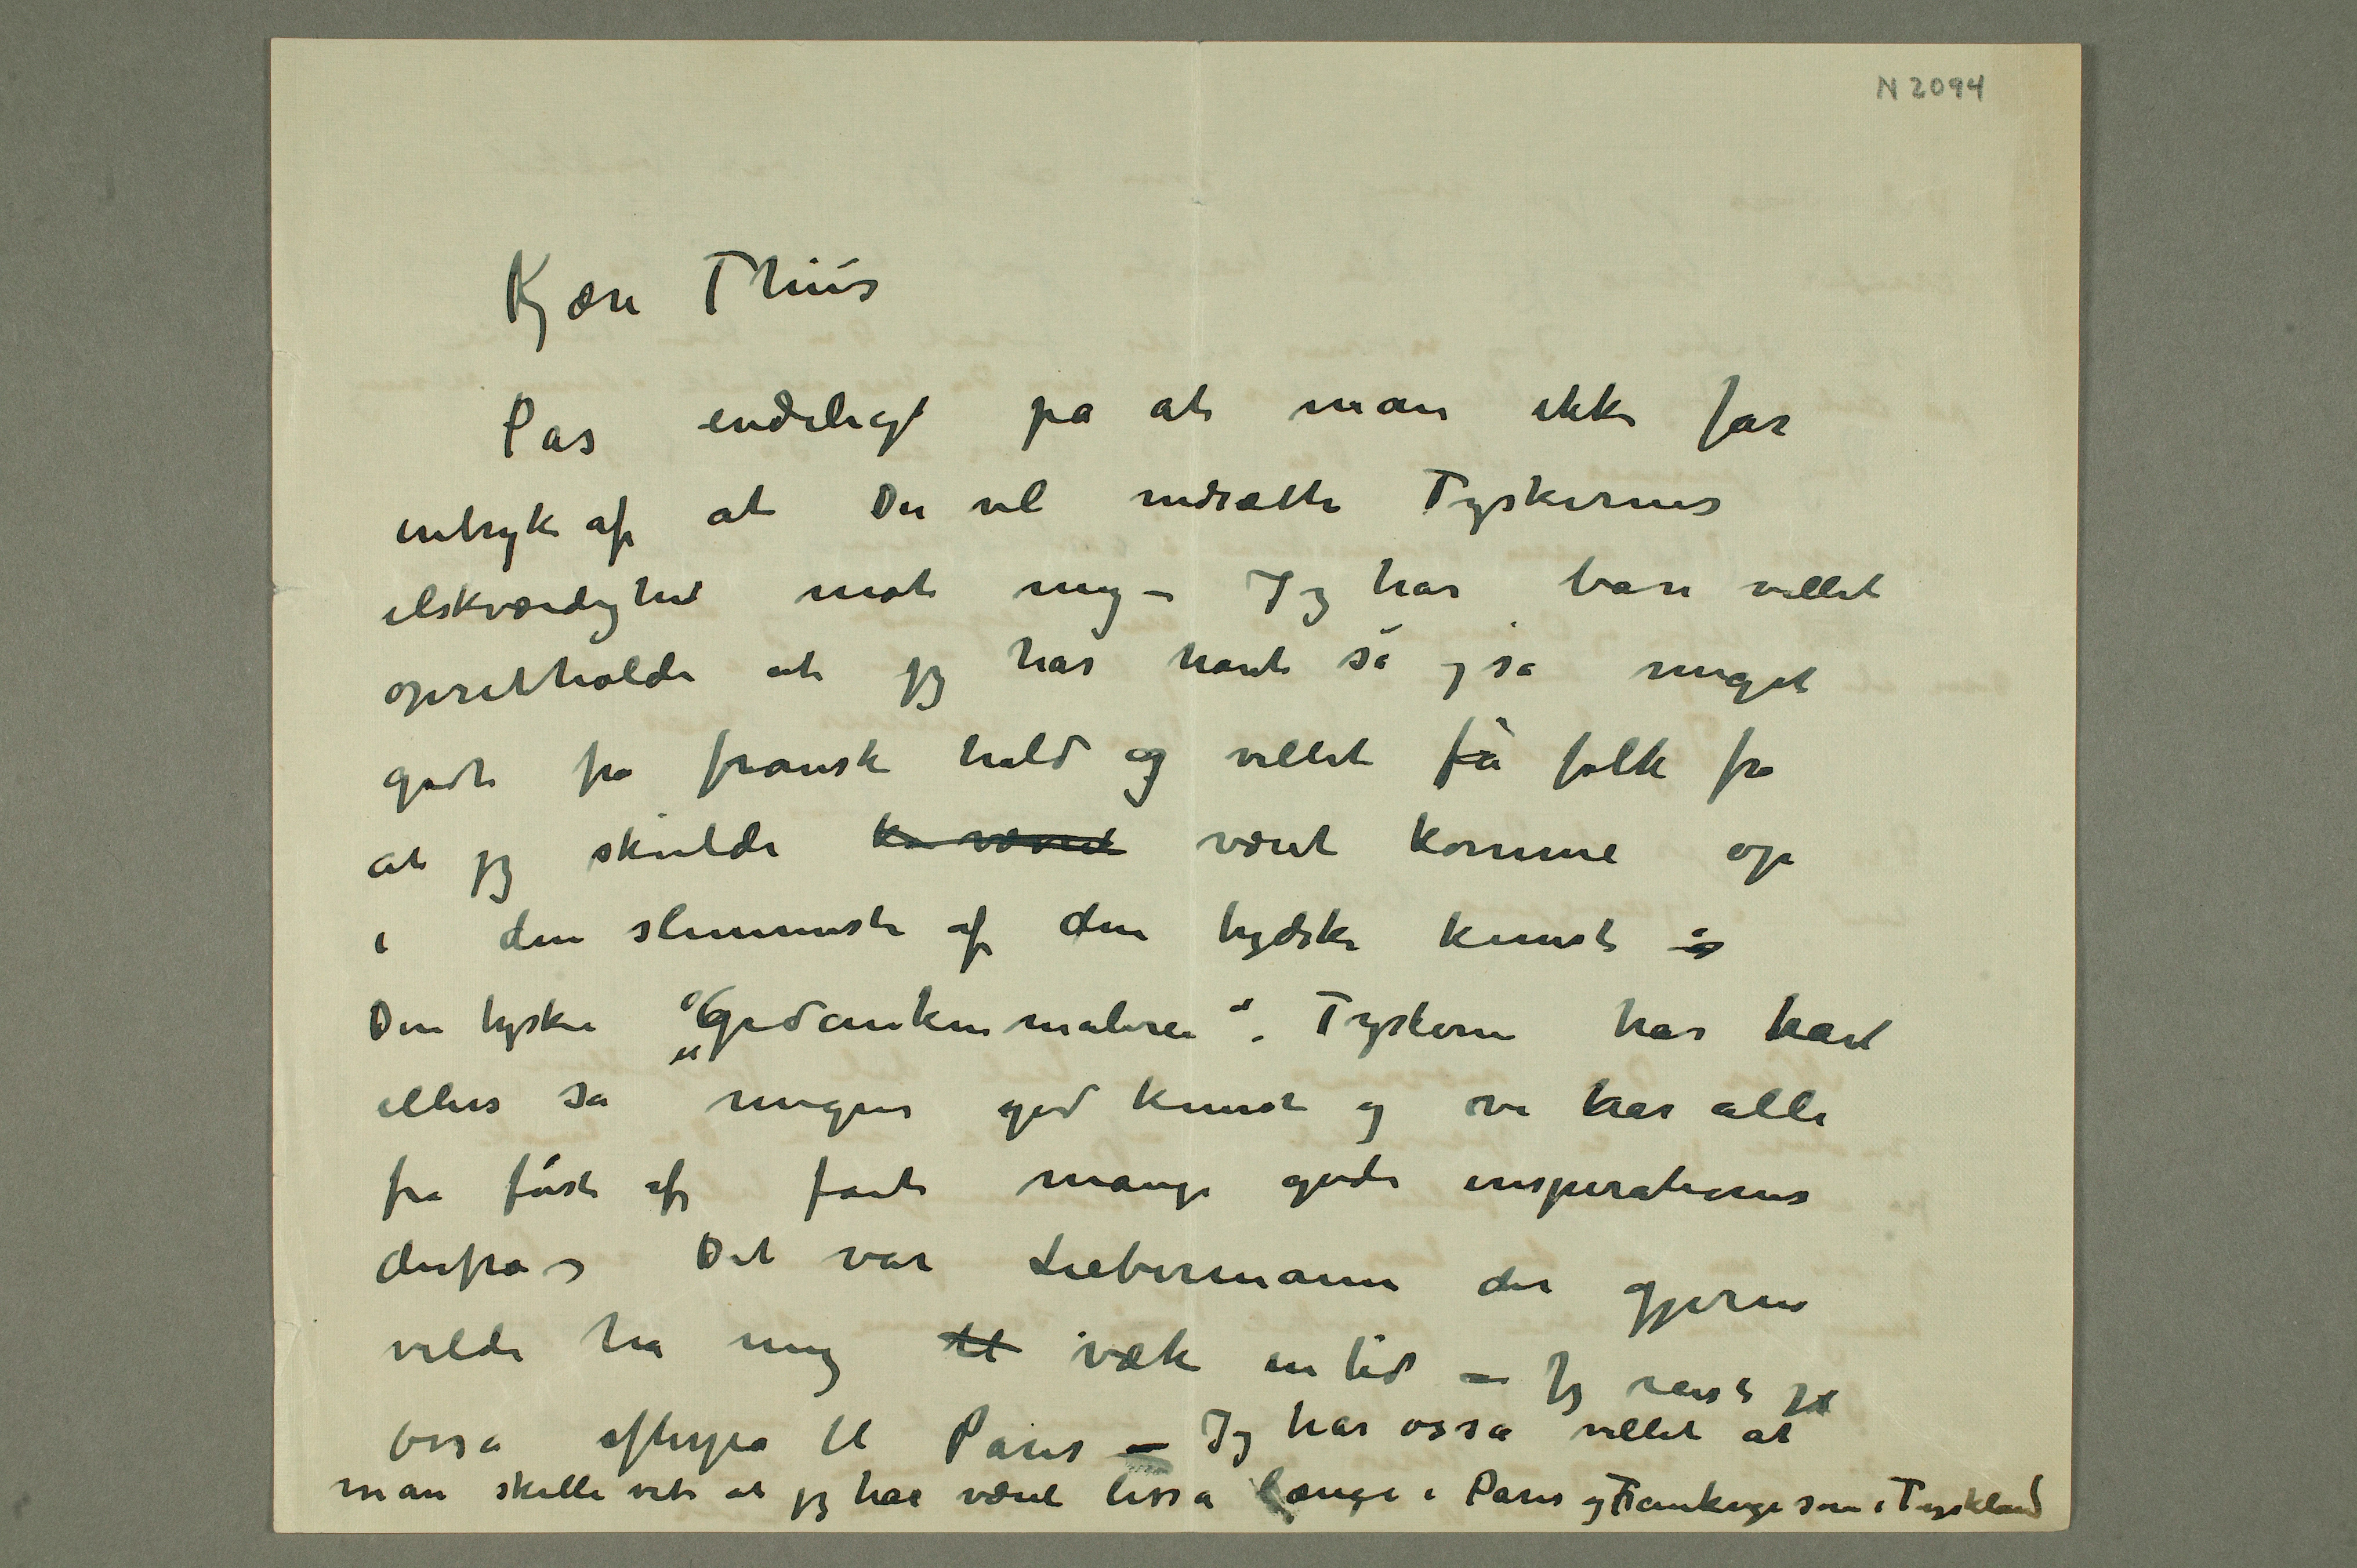 N 2094
Kjære Thiis
Pas endeligt på at man ikke får
intryk af at Du vil nedsætte Tyskernes
elskværdighed mot mig – Jeg har bare villet
opretholde at jeg har havt så og så meget
godt fra fransk hold og villet få folk fra
at jeg skulde været komme op
i den slemmeste af den tydske kunst
Den tyske „Gedankenmalerei“. Tyskerne har havt
ellers så megen god kunst og vi har alle
fra først af fået mange gode inspirationer
derfra – Det var Liebermann der gjerne
vilde ha mig væk en tid – Jeg reiste
osså efterpå til Paris – Jeg har osså villet at
man skulle vite at jeg har været lisså længe i Paris og Frankrige som i Tyskland